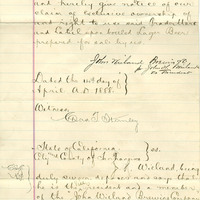 and hereby give notice of our
claim of exclusive ownership of
and right to use said Trademark
and Label upon bottled Lager Beer
prepared for sale by us
John Wieland Brewing Co
by John H. Wieland
Vice President
Dated the 14th day of
April A.D. 1888.
Witness
State of California
City & County of San Francisco } ss.
Wieland, being
duly sworn deposes and says that
he is the President and a member
of the "John Wieland Brewing Company